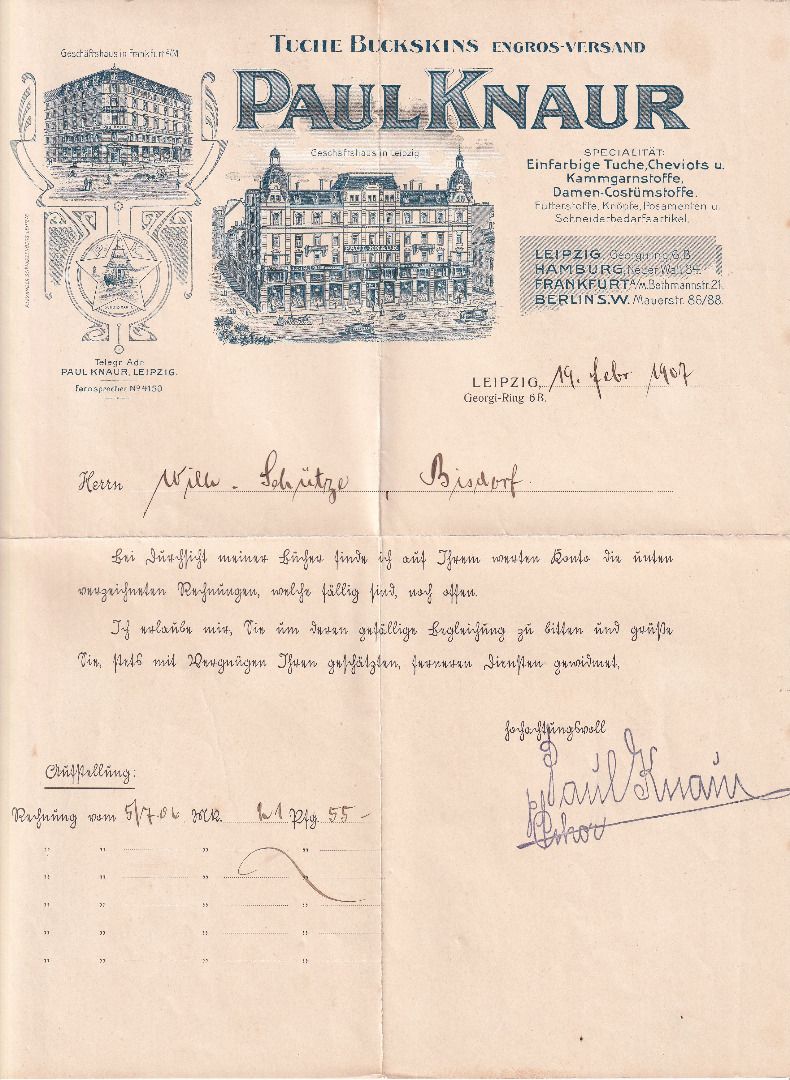 Geschäftshaus in Frankfurt a/M
TUCHE BUCKSKINS ENGROS-VERSAND
PAUL KNAUR
Geschäftshaus in Leipzig
PAUL KNAUR
SPECIALITÄT:
Einfarbige Tuche, Cheviots u.
Kammgarnstoffe,
Damen-Costümstoffe.
Futterstoffe, Knöpfe, Posamenten u.
Schneiderbedarfsartikel.
LEIPZIG, Georgiring 6 B.
HAMBURG, Neuer Wall 84.
FRANKFURT A/M. Bethmannstr. 21.
BERLIN S.W. Mauerstr. 86/88.
Telegr. Adr.
PAUL KNAUR, LEIPZIG.
Fernsprecher Nº 4150
LEIPZIG, 19. Febr 1907
Georgi-Ring 6 B.
Herrn Wilh. Schütze, Bisdorf.
Bei Durchsicht meiner Bücher finde ich auf Ihrem werten Konto die unten
verzeichneten Rechnungen, welche fällig sind, noch offen.
Ich erlaube mir, Sie um deren gefällige Begleichung zu bitten und grüße
Sie, stets mit Vergnügen Ihren geschätzten, ferneren Diensten gewidmet,
hochachtungsvoll
Paul Knaur
Aufstellung:
Rechnung vom 5/7.06 Mk. 41 Pfg. 55 -
" " " "
" " " "
" " " "
" " " "
" " " "